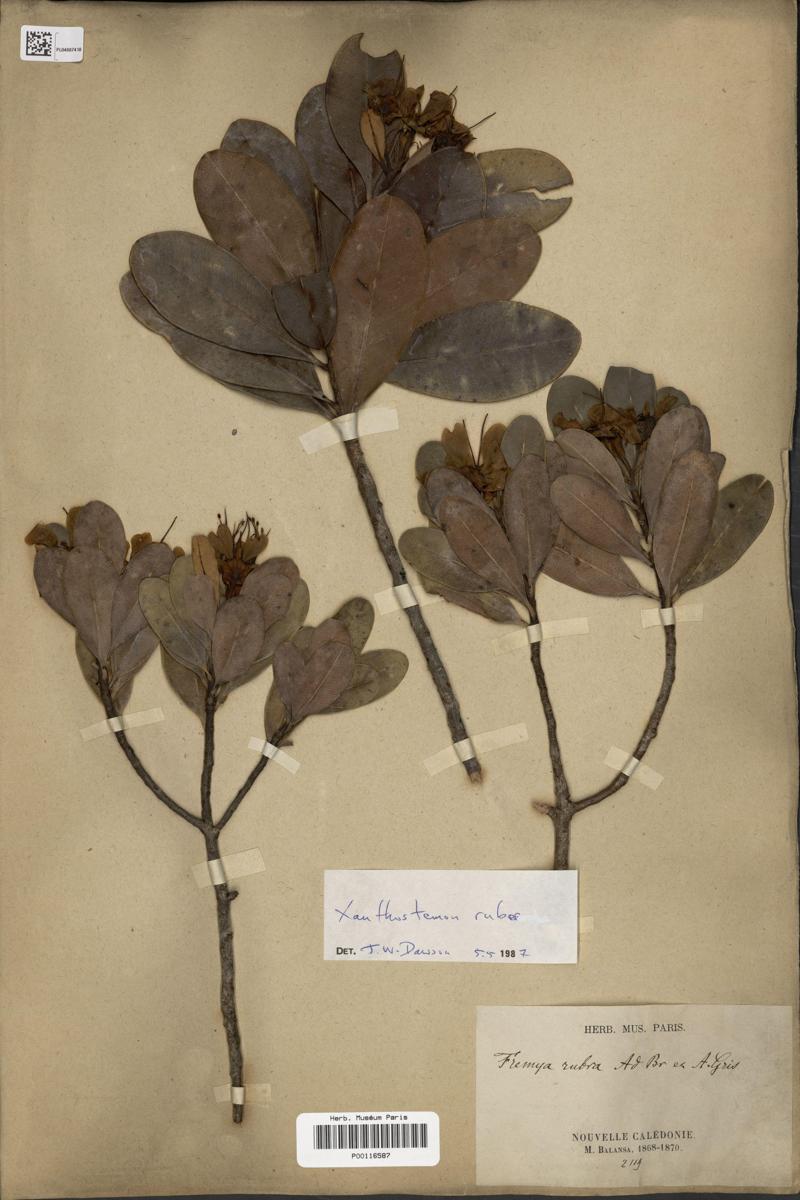 PL04887418
Xanthostemon ruber
DET. J. W. Dawson 5.5 1987
HERB. MUS. PARIS.
Fremya rubra Ad Br ex A. Gris
NOUVELLE CALÉDONIE.
M. BALANSA, 1868-1870.
2119
Herb. Muséum Paris
P00116587